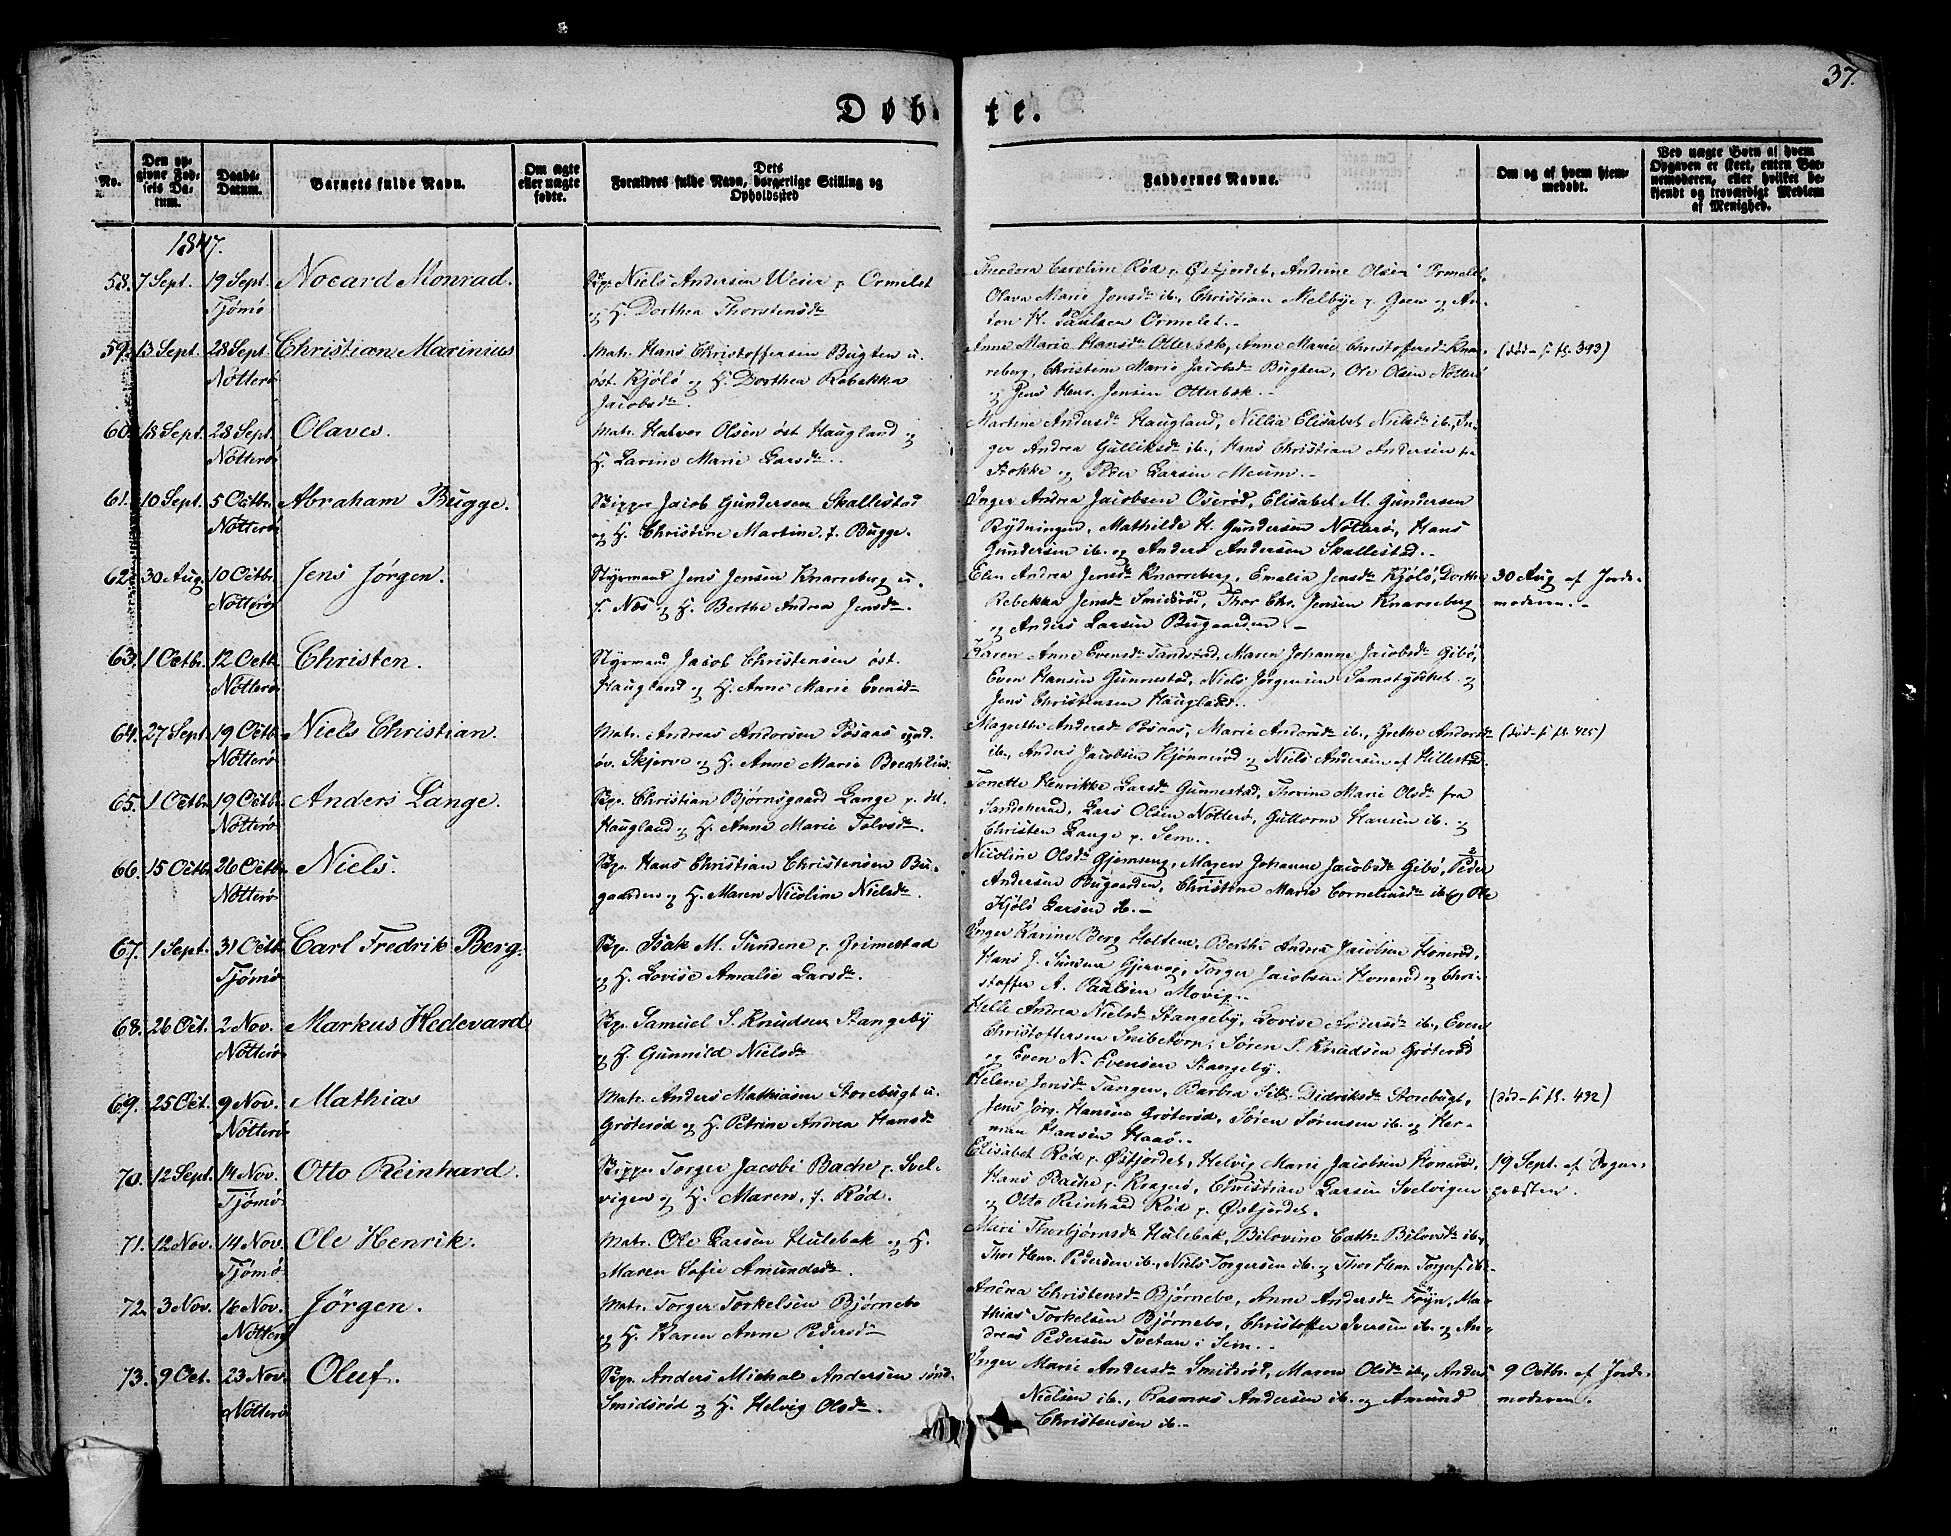 37.
Døb-te.
No.
Den op-
givne Fød-
sels Da-
tum.
Daabs-
Datum.
Barnets fulde Navn.
Om ægte
eller uægte
fødte.
Dets
Forældres fulde Navn, borgerlige Stilling og
Opholdssted
Faddernes Navne.
Om og af hvem hjem-
medøbt.
Ved uægte Born af hvem
Opgaven er skeet, enten Bar-
nemoderen, eller hvilket be-
kjendt og troværdigt Medlem
af Menighed.
1847.
58. 7 Sept. 19 Sept. Nocard Monrad. Niels Andersen Weier p. Ormelet
Tjømø og H. Dorthea Thorstensdr
Theodora Caroline Rød p. Østjordet, Andrine Olsen Ormelet,
Olava Marie Jonsdr ib., Christian Melbye p. Goen og An-
ton H. Paulsen Ormelet.
59. 13 Sept. 28 Sept. Christian Marinius Matr. Hans Christoffersen Bugten u.
Nøtterø øst. Kjølø og H. Dorthea Rebekka
Jacobsdr.
Anne Marie Hansdr Otterbek, Anne Marie Christoffersdr Knar-
reberg, Christene Marie Jacobsdr Bugten, Ole Olsen Nøtterø
og Jens Henr. Jensen Otterbek.
(død - f. 393)
60. 18 Sept. 28 Sept. Olaves. Matr. Halvor Olsen øst Haugland og
Nøtterø H. Larine Marie Larsdr.
Martine Andersdr Haugland, Nillia Elisabet Nielsdr ib., In-
ger Andrea Gulliksdr ib., Hans Christian Andersen fra
Stokke og Peer Larsen Meum.
61. 10 Sept. 5 Octbr. Abraham Bugge. Skipper Jacob Gundersen Skallestad
Nøtterø og H. Christine Martine, f. Bugge.
Inger Andrea Jacobsen Oserød, Elisabet M. Gundersen
Rydningen, Mathilde H. Gundersen Nøtterø, Hans
Gundersen ib. og Anders Andersen Skallestad.
62. 30 Aug. 10 Octbr. Jens Jørgen. Styrmand Jens Jensen Knarreberg u.
Nøtterø f. Næs og H. Berthe Andrea Jensdr.
Elen Andrea Jensdr Knarreberg, Emalia Jensdr Kjølø, Dorthe
Rebekka Jensdr Smidsrød, Thor Chr. Jensen Knarreberg
og Anders Larsen Bugaarden.
30 Aug af Jorde-
moderen.
63. 1 Octbr. 12 Octb. Christen. Styrmand Jacob Christensen øst.
Nøtterø Haugland og H. Anne Marie Evensdr
Karen Anne Evensdr Tandstad, Maren Johanne Jacobsdr Gibø,
Even Hansen Gunnestad, Niels Jørgensen og
Jens Christensen Haugland.
64. 27 Sept. 19 Octb. Niels Christian. Matr. Andreas Andersen Røsaas und.
Nøtterø øv. Skjerve og H. Anne Marie
Magrethe Andersdr Røsaas, Marie Andersdr ib., Grethe Andersdr
ib., Anders Jacobsen Kjønnerød og Niels Andersen af Hillestad.
(død - f. 425)
65. 1 Octbr. 19 Octb. Anders Lange. Christian Bjørnsgaard Lange p. øst.
Nøtterø Haugland og H. Anne Marie Tolvsdr.
Tonette Henrikke Larsdr Gunnestad, Thorine Marie Olsdr fra
Sandeherad, Lars Olsen Nøtterø, Guttorm Hansen ib. og
Christen Lange p. Sem.
66. 15 Octb. 26 Octb. Niels. Hans Christian Christensen Bu-
Nøtterø gaarden og H. Maren Nicoline Nielsdr.
Nicoline Olsdr Gjemseng, Maren Johanne Jacobsdr Gibø, Peder
Andersen Bugaarden, Christine Marie Corneliusdr ib. og Ole
Kjølø Larsen ib.
67. 1 Sept. 31 Octb. Carl Fredrik Berg. Isak M. Sundene p. Grimestad
Tjømø og H. Lovise Amalie Larsdr.
Inger Karine Berg Holtene, Berthe Andrea Jacobsen Honerød,
Hans J. Sundene Gjervog, Torger Jacobsen Honerød og Chri-
stoffer A. Paulsen Moviz.
68. 26 Oct. 2 Nov. Markus Hedevard Samuel S. Knudsen Stangeby
Nøtterø og H. Gunnild Nielsdr
Helle Andrea Nielsdr Stangeby, Lovise Andersdr ib., Even
Christoffersen Snibetorp, Søren S. Knudsen Grøterød
og Even N. Evensen Stangeby.
69. 25 Oct. 9 Nov. Mathias Matr. Anders Mathiasen Storebugt u.
Nøtterø Grøterød og H. Petrine Andrea Hansdr
Helene Jensdr Tangen, Barbra Sib. Didriksdr Storebugt,
Jens Jørg. Hansen Grøterød, Søren Sørensen ib. og Her-
man Hansen Haaø.
(død - f. 492)
70. 12 Sept. 14 Nov. Otto Reinhard. Skipper Torger Jacobi Bache p. Svel-
Tjømø vigen og H. Maren, f. Rød.
Elisabet Rød p. Østjordet, Helvig Marie Jacobsen Honerød,
Hans Bache p. Kragerø, Christian Larsen Svelvigen
og Otto Reinhard Rød p. Østjordet.
19 Sept. af Sogne-
præsten.
71. 12 Nov. 14 Nov. Ole Henrik. Matr. Ole Larsen Hulebak og H.
Tjømø Maren Sofie Amundsdr.
Mari Thorbjørnsdr Hulebak, Bilovine Cath. Bilovsdr ib.,
Thor Henr. Pedersen ib., Niels Torgersen ib. og Thor Henr. Torgers. ib.
72. 3 Nov. 16 Nov. Jørgen. Matr. Torger Torkelsen Bjørnebo
Nøtterø og H. Karen Anne Pedersdr
Andrea Christensdr Bjørnebo, Anne Andersdr Føyn, Ma-
thias Torkelsen Bjørnebo, Christoffer Iversen ib. og An-
dreas Pedersen Tvetan i Sem.
73. 9 Oct. 23 Nov. Oluf. Anders Michal Andersen sønd.
Nøtterø Smidsrød og H. Helvig Olsdr.
Inger Marie Andersdr Smidsrød, Maren Olsdr ib., Anders
Nielsen ib., Rasmus Andersen ib. og Amund
Christensen ib.
9 Octbr. af Jorde-
moderen.